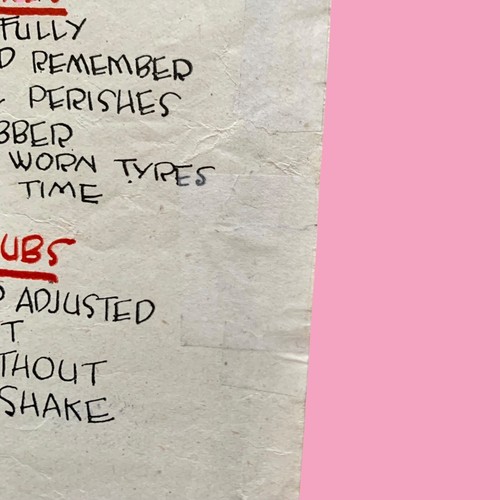 FULLY
D REMEMBER
PERISHES
BBER
WORN TYRES
TIME
UBS
ADJUSTED
T
THOUT
SHAKE